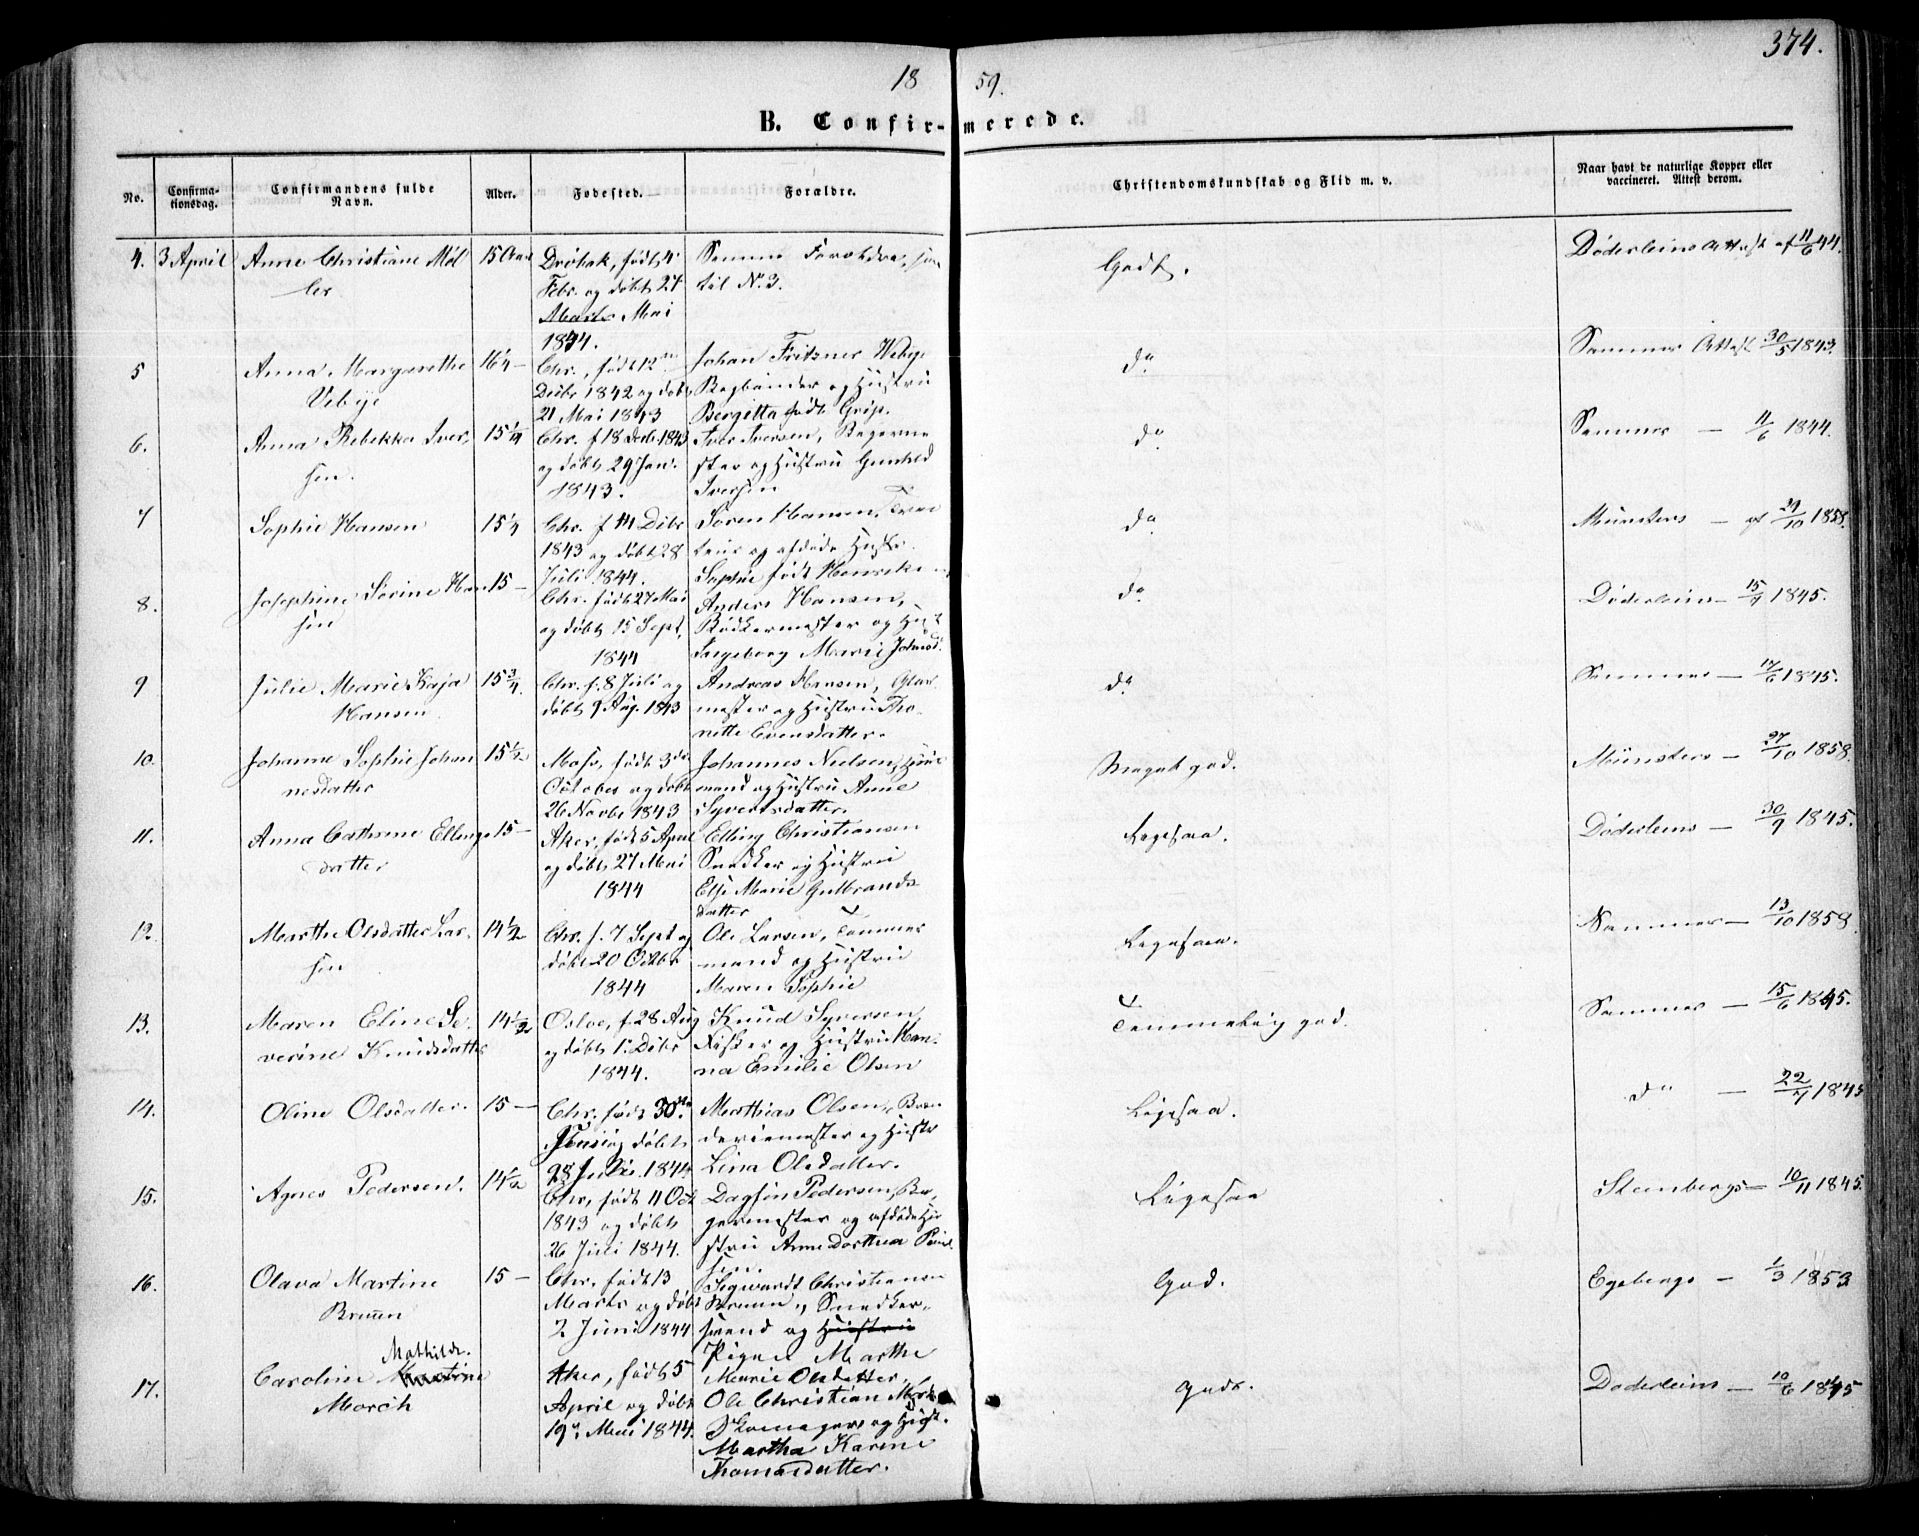 374.
18 59.
B. Confir- merede.
No.
Confirma-
tionsdag.
Confirmandens fulde
Navn.
Alder.
Fødested.
Forældre.
Christendomskundskab og Flid m. v.
Naar havt de naturlige Kopper eller
vaccineret. Attest derom.
4. 3 April Anne Christiane Møl
ler
15 Aar
Drøbak, født 4
Febr. og døbt 27
Marts Mai
1844.
Samme Forældre, som
til No. 3.
Godt.
Døderleins Attest af 11/6 44
5
Anna Margarethe
Vebye
16¼ —
Chr., født 12te
Decbr 1842 og døbt
21 Mai 1843
Johan Fritzner Vebye
Bogbinder og Hustru
Bergitta født Grip.
do
Sammes Attest 30/5 1843.
6.
Anna Rebekka Iver,
sen.
15¼
Chr. f 18 Decb. 1843
og døbt 29 Jan.
1843.
Iver Iversen,
ster og Hustru Gunhild
Iversen
do
Sammes — 11/6 1844.
7
Sophie Hansen
15¼
Chr. f 11 Decbr
1843 og døbt 28
Juli 1844.
Søren Hansen,
og afdøde Hustr.
Sophie født
do
Münsters — af 29/10 1858.
8.
Josephine Sørine Han
sen
15 —
Chr. født 27 Mai
og døbt 15 Sept.
1844
Anders Hansen,
Bødkermester og Hust
Ingeborg Marie
do
Døderleins — 15/9 1845.
9
Julie Marie Kaja
Hansen
15¾.
Chr. f. 8 Juli og
døbt 9 Aug. 1843
Andreas Hansen, Glar
mester og Hustru Tho-
nette Evensdatter.
do
Sammes — 17/6 1845.
10.
Johanne Sophie Johan
nesdatter
15½
Moss, født 3die
October og døbt
26 Novbr 1843
Johannes Nielsen, Huus
mand og Hustru Anne
Syvertsdatter.
Meget god.
Münsters — 27/10 1858.
11.
Anna Cathrine Ellings
datter
15 —
Aker, født 5 April
og døbt 27 Mai
1844
Elling Christiansen
Snedker og Hustru
Else Marie Gulbrands
datter
Ligesaa.
Døderleins — 30/9 1845.
12.
Marthe Olsdatter Lar
sen
14½
Chr. f. 7 Sept og
døbt 20 Octbr
1844
Ole Larsen, Tømmer
mand og Hustru
Maren Sophie
Ligesaa.
Sammes — 13/10 1858
13.
Maren Eline Se.
verine Knudsdatter
14½
Osloe, f. 28 Aug
og døbt 1 Decbr
1844.
Knud Syversen,
Fisker og Hustru Han-
na Emilie Olsen
Temmelig god.
Sammes — 15/6 1845.
14.
Oline Olsdatter.
15 —
Chr. født 30te
og døbt
28 Juli. 1844
Mathias Olsen, Bræn
deriemester og Hustr
Lina Olsdatter.
Ligesaa.
do — 22/7 1845
15.
Agnes Pedersen.
14½
Chr, født 11 Oct
1843 og døbt
26 Juli 1844.
Dagfin Pedersen, Ba,
germester og afdøde Hu
stru Anne Dorthea
Ligesaa
Steenbergs — 10/11 1845.
16.
Olava Martine
Bruun
15 —
Chr, født 13
Marts og døbt
2 Juni 1844
Sigwardt Christiansen
Bruun, Snedker-
svend og Hustru
Pigen Marthe
Marie Olsdatter,
God.
Egebergs — 1/3 1853
17.
Mathilde.
Caroline Martine
Morch
Aker, født 5
April og døbt
19de Mai 1844.
Ole Christian
Skomager og Hust.
Martha Karine
Thomasdatter.
Godt.
Døderleins — 10/6 1845